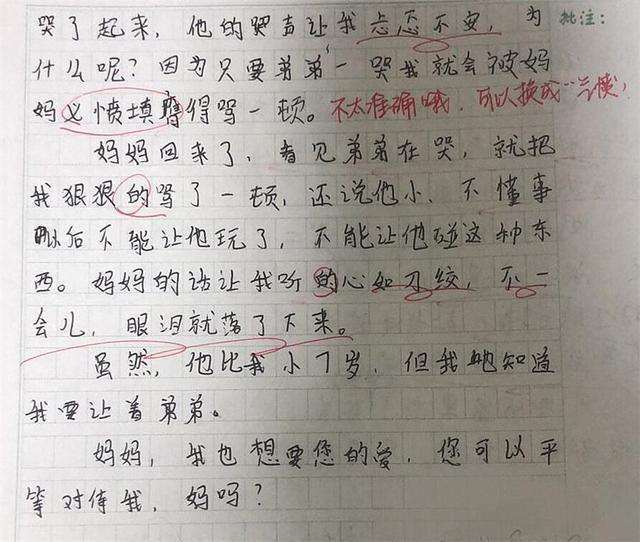 哭了起来，他的哭声让我忐忑不安，为 批注：
什么呢？因为只要弟弟一哭我就会被妈
妈义愤填膺得骂一顿。不太准确哦，可以换成“气愤”
妈妈回来了，看见弟弟在哭，就把
我狠狠的骂了一顿，还说他小、不懂事
以后不能让他玩了，不能让他碰这种东
西。妈妈的话让我听的心如刀绞，不一
会儿，眼泪就落了下来。
虽然，他比我小7岁，但我也知道
我要让着弟弟。
妈妈，我也想要您的爱，您可以平
等对待我，妈吗？